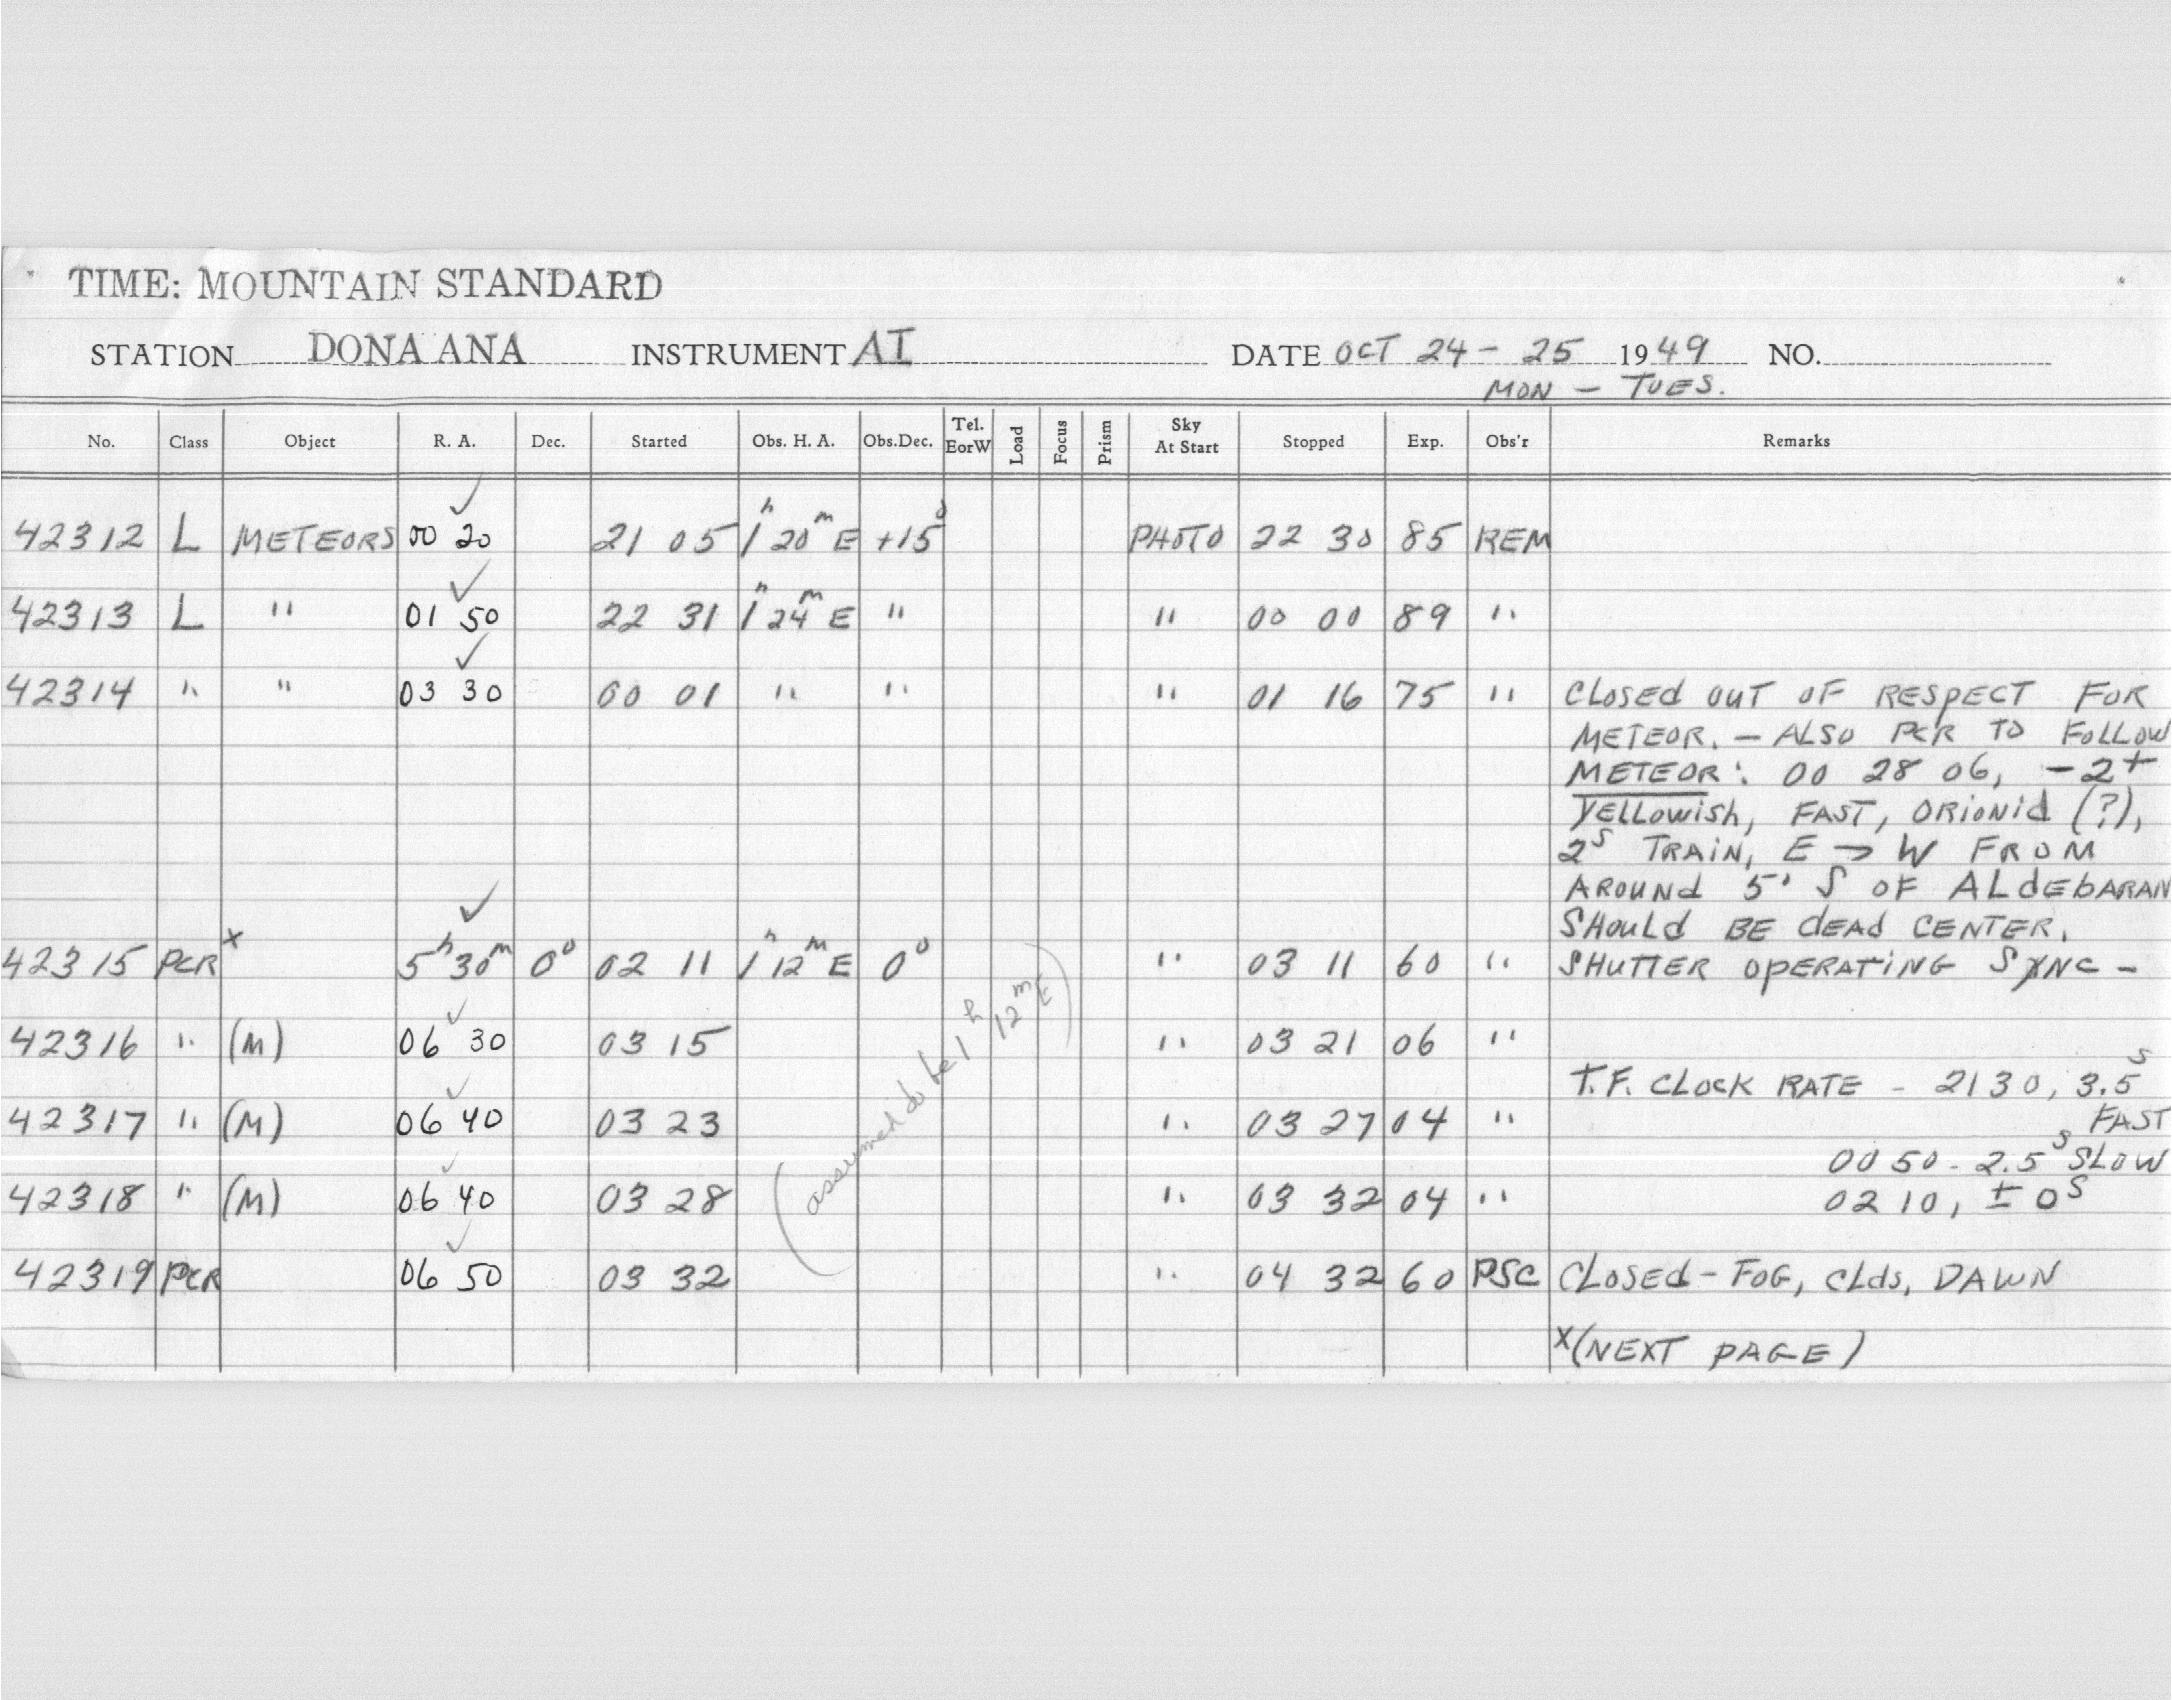 TIME: MOUNTAIN STANDARD
STATION DONA ANA INSTRUMENT AI DATE OCT 24 - 25 1949 NO.
MON - TUES.
No. Class Object R. A. Dec. Started Obs. H. A. Obs.Dec. Tel. EorW Load Focus Prism Sky At Start Stopped Exp. Obs'r Remarks
42312 L METEORS 00 20 ✓ 21 05 1h 20m E +15° PHOTO 22 30 85 REM
42313 L " 01 50 ✓ 22 31 1h 24m E " " 00 00 89 "
42314 " " 03 30 ✓ 00 01 " " " 01 16 75 " CLOSED OUT OF RESPECT FOR
METEOR. - ALSO PCR TO FOLLOW
METEOR: 00 28 06, -2+
YELLOWISH, FAST, ORIONID (?),
2s TRAIN, E → W FROM
AROUND 5° S OF ALDEBARAN
SHOULD BE DEAD CENTER.
42315 PCR x 5h 30m ✓ 0° 02 11 1h 12m E 0° " 03 11 60 " SHUTTER OPERATING SYNC -
42316 " (M) 06 30 ✓ 03 15 " 03 21 06 "
T.F. CLOCK RATE - 2130, 3.5s
42317 " (M) 06 40 ✓ 03 23 " 03 27 04 " FAST
0050 - 2.5s SLOW
42318 " (M) 06 40 ✓ 03 28 " 03 32 04 " 0210, ± 0s
(assumed to be 1h 12m E)
42319 PCR 06 50 ✓ 03 32 " 04 32 60 PSC CLOSED - FOG, CLDS, DAWN
x (NEXT PAGE)